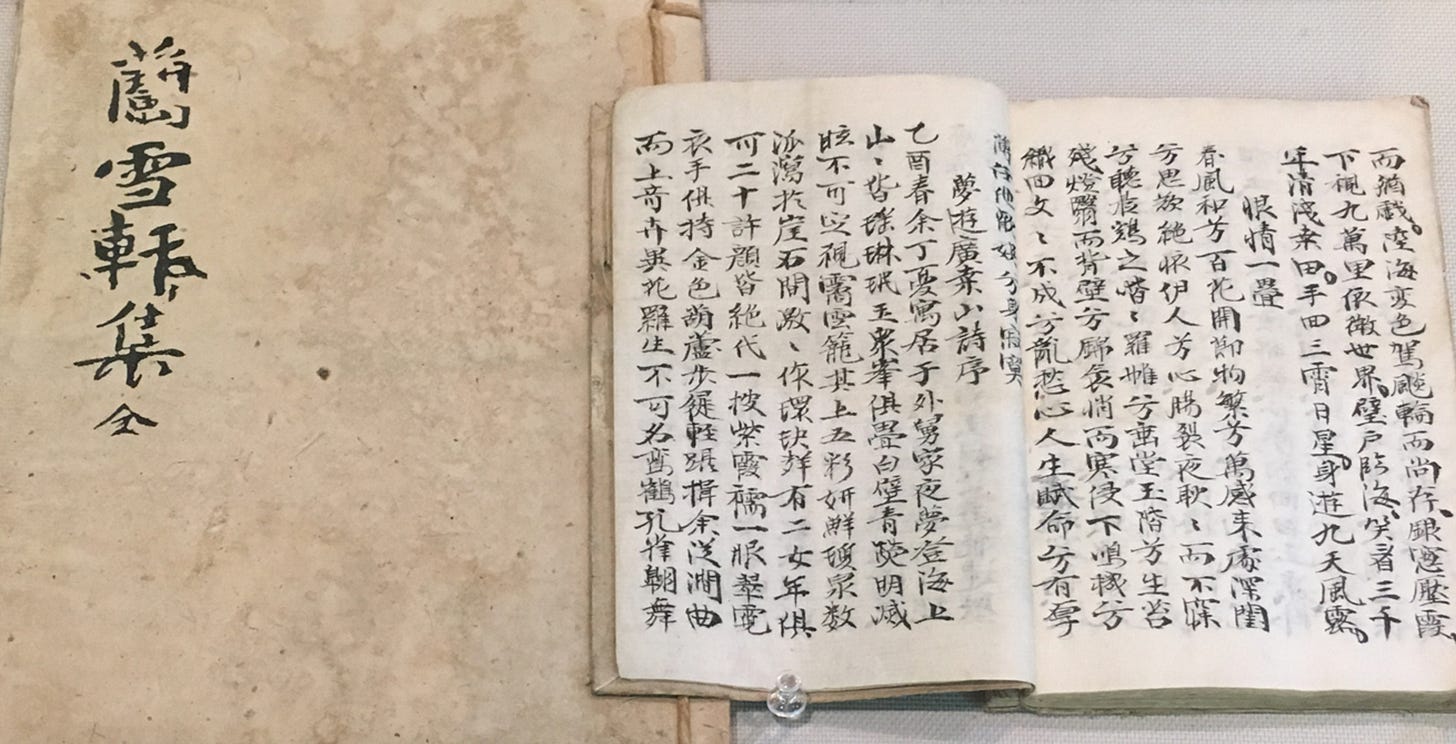 蘭雪軒集 全
而猶戱。陸海変色駕飈輪而尚存。銀窓壓霞、
下視九萬里依微世界。壁戶臨海。笑看三千
年清淺桒田。手回三霄日星。身遊九天風露。
恨情一疊
春風和兮百花開節物繁兮萬感来處深閨
兮思欲絶懐伊人兮心腸裂夜耿〻而不寐
兮聽晨鷄之喈〻羅帷兮垂堂玉階兮生苔
殘燈翳而背壁兮錦衾悄而寒侵下鳴機兮
織回文〻不成兮亂愁心人生賦命兮有厚
薄任他歡娛兮身寂寞
夢遊廣桒山詩序
乙酉春余丁憂寓居于外舅家夜夢登海上
山〻皆瑤琳珉玉衆峯俱疊白璧青熒明滅
眩不可定視霱雲籠其上五彩妍鮮瓊泉数
派瀉於崖石間激〻作環玦聲有二女年俱
可二十許顔皆絶代一披紫霞襦一服翠霓
衣手俱持金色葫蘆步屣輕躡揖余從澗曲
而上奇卉異花羅生不可名鸞鶴孔雀翱舞